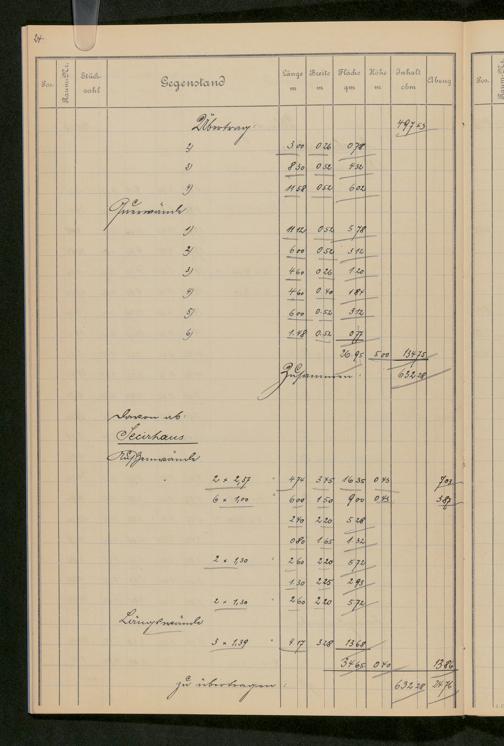 24.
Pos. Raum-No. Stückzahl Gegenstand Länge m Breite m Fläche qm Höhe m Inhalt cbm Abzug Pos.
Übertrag 497 53
2) 3 00 0 26 0 78
3) 8 30 0 52 4 32
4) 11 58 0 52 6 02
Querwände
1) 11 12 0 52 5 78
2) 6 00 0 52 3 12
3) 4 60 0 26 1 20
4) 4 60 0 40 1 84
5) 6 00 0 52 3 12
6) 1 48 0 52 0 77
26 95 5 00 134 75
Zusammen 632 28
Davon ab:
Secirhaus
Außenwände
2 × 2,37 4 74 3 45 16 35 0 43 7 03
6 × 1,00 6 00 1 50 9 00 0 43 3 87
2 40 2 20 5 28
0 80 1 65 1 32
2 × 1,30 2 60 2 20 5 72
1 30 2 25 2 93
2 × 1,30 2 60 2 20 5 72
Längswände
3 × 1,39 4 17 3 28 13 68
34 65 0 40 13 86
zu übertragen 632 28 24 76